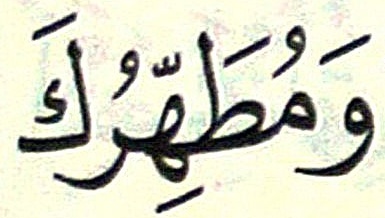 وَمُطَهِّرُكَ